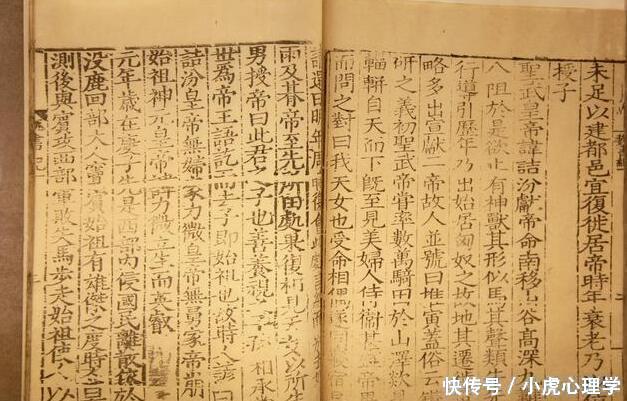 未足以建都邑宜復徙居帝時年衰老乃
授子
聖武皇帝諱詰汾獻帝命南移山谷高深九
八阻於是欲止有神獸其形似馬其聲類
行導引歷年乃出始居匈奴之故地其遷徙
略多出宣獻二帝故人並號曰推寅蓋俗云
研之義初聖武帝嘗率數萬騎田於山澤欻
輜軿自天而下既至見美婦人侍衛甚
而問之對曰我天女也受命相偶
請還曰明年周時復會此處
雨及朞帝至先所田處果復相見以所生
男授帝曰此君之子也善養視之子孫相承
世為帝王語訖而去子即始祖也故時人諺曰
詰汾皇帝無婦家力微皇帝無舅家帝崩
始祖神元皇帝諱力微立生而英叡
元年歲在庚子先是西部内侵國民離散依於
没鹿回部大人竇賓始祖有雄傑之度時人
測後與賓攻西部軍敗失馬步走始祖使人以
快传号/小虎心理学